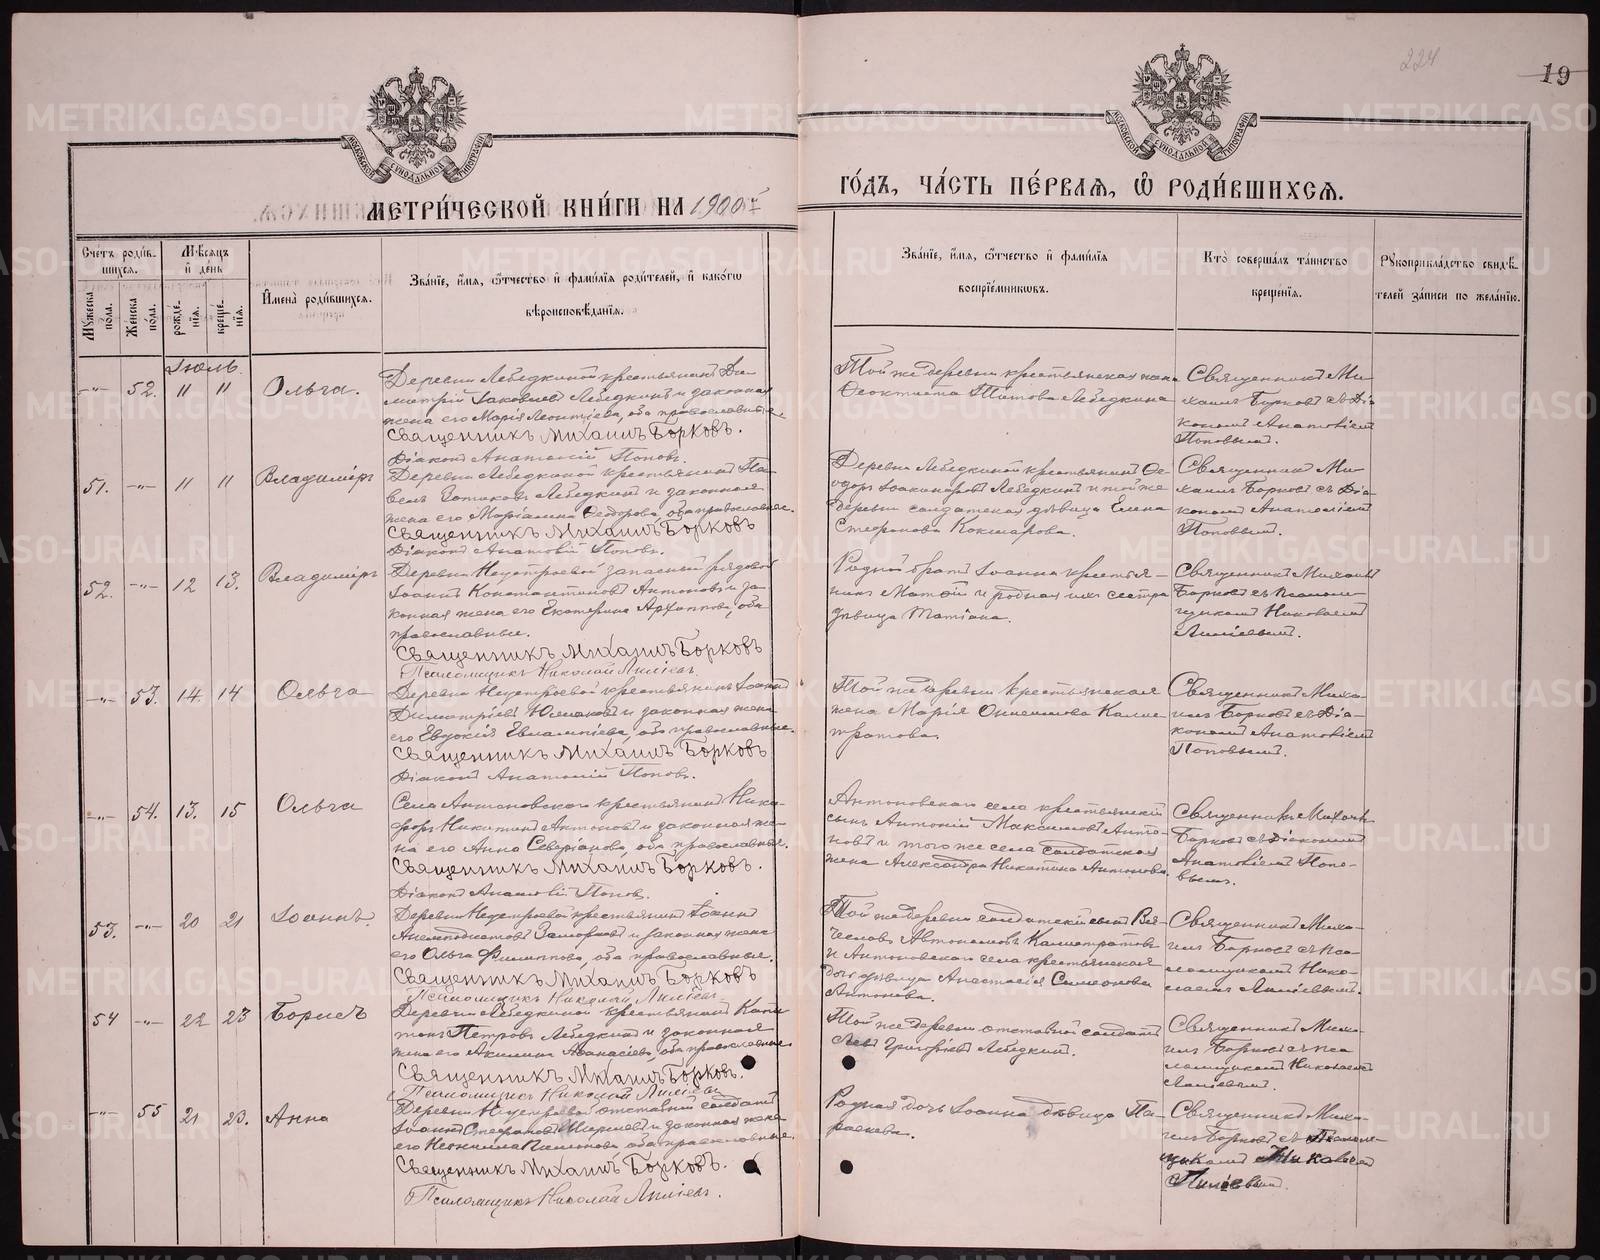 224
19
МЕТРИ́ЧЕСКОЙ КНИ́ГИ НА 1900й
ГО́ДЪ, ЧА́СТЬ ПЕ́РВАѦ, Ѡ҆ РОДИ́ВШИХСѦ.
Сче́тъ роди́в-
шихсѧ.
Мѣ́сѧцъ
и҆ де́нь
Мꙋ́жеска по́ла.
Же́нска по́ла.
рожде́-
нїѧ.
креще́-
нїѧ.
И҆мена̀ роди́вшихсѧ.
Зва́нїе, и҆́мѧ, ѻ҆́тчество и҆ фамѝлїѧ роди́телей, и҆ како́гѡ
вѣроисповѣ́данїѧ.
Зва́нїе, и҆́мѧ, ѻ҆́тчество и҆ фами́лїѧ
воспрїе́мникѡвъ.
Кто̀ соверша́лъ та́инство
креще́нїѧ.
Рꙋкоприкла́дство свидѣ́-
телей за́писи по жела́нїю.
Іюль.
-"- 52. 11 11 Ольга.
Деревни Лебедкиной крестьянинъ Ди-
митрій Іаковлевъ Лебедкинъ и законная
жена его Марія Леонтіева, оба православные
Священникъ Михаилъ Борковъ.
Діаконъ Анатолій Поповъ.
Той же деревни крестьянская жена
Феоктиста Титова Лебедкина
Священникъ Ми-
хаилъ Борковъ съ Діа-
кономъ Анатоліемъ
Поповымъ.
51. -"- 11 11 Владиміръ
Деревни Лебедкиной крестьянинъ Па-
велъ Лебедкинъ и законная
жена его Маріамна Феодорова, оба православные.
Священникъ Михаилъ Борковъ
Діаконъ Анатолій Поповъ.
Деревни Лебедкиной крестьянинъ Фе-
одоръ Лебедкинъ и той же
деревни солдатская дѣвица Елена
Стефанова Кокшарова.
Священникъ Ми-
хаилъ Борковъ съ Діа-
кономъ Анатоліемъ
Поповымъ.
52. -"- 12 13. Владиміръ
Деревни Неустроевой запасный рядовой
Іоаннъ Константиновъ Антоновъ и за-
конная жена его Екатерина Архиппова, оба
православные.
Священникъ Михаилъ Борковъ
Псаломщикъ Николай Лиліевъ
Родной братъ Іоанна крестья-
нинъ Матѳій и родная ихъ сестра
дѣвица Татіана.
Священникъ Михаилъ
Борковъ съ Псалом-
щикомъ Николаемъ
Лиліевымъ.
-"- 53. 14. 14 Ольга
Деревни Неустроевой крестьянинъ Іоаннъ
Димитріевъ и законная жена
его Евдокія Евлампіева, оба православные.
Священникъ Михаилъ Борковъ
Діаконъ Анатолій Поповъ.
Той же деревни крестьянская
жена Марія Онисимова Калис-
тратова.
Священникъ Миха-
илъ Борковъ съ Діа-
кономъ Анатоліемъ
Поповымъ.
-"- 54. 13. 15 Ольга
Села Антоновскаго крестьянинъ Ника-
форъ Никитинъ Антоновъ и законная же-
на его Анна Северіанова, оба православные.
Священникъ Михаилъ Борковъ.
Діаконъ Анатолій Поповъ.
Антоновскаго села крестьянскій
сынъ Антоній Максимовъ Анто-
новъ и того же села солдатская
жена Александра Никитина Антонова.
Священникъ Михаилъ
Борковъ съ Діакономъ
Анатоліемъ Попо-
вымъ.
53. -"- 20 21 Іоаннъ.
Деревни Неустроевой крестьянинъ Іоаннъ
и законная жена
его Ольга Филиппова, оба православные.
Священникъ Михаилъ Борковъ
Псаломщикъ Николай Лиліевъ
Той же деревни солдатскій сынъ Вя-
чеславъ Автономовъ Калистратовъ
и Антоновскаго села крестьянская
дочь дѣвица Анастасія Симеонова
Антонова.
Священникъ Миха-
илъ Борковъ съ Пса-
ломщикомъ Нико-
лаемъ Лиліевымъ.
54 -"- 22 23 Борисъ
Деревни Лебедкиной крестьянинъ Капи-
тонъ Петровъ Лебедкинъ и законная
жена его Акилина Аѳанасіева, оба православные
Священникъ Михаилъ Борковъ.
Псаломщикъ Николай Лиліевъ
Той же деревни отставной солдатъ
Левъ Григорьевъ Лебедкинъ.
Священникъ Миха-
илъ Борковъ съ Пса-
ломщикомъ Николаемъ
Лиліевымъ.
-"- 55 21 23. Анна
Деревни Неустроевой отставной солдатъ
Іоаннъ Стефановъ и законная жена
его оба православные.
Священникъ Михаилъ Борковъ.
Псаломщикъ Николай Лиліевъ.
Родная дочь Іоанна дѣвица Па-
раскева.
Священникъ Миха-
илъ Борковъ съ Псалом-
щикомъ Николаемъ
Лиліевымъ.
METRIKI.GASO-URAL.RU